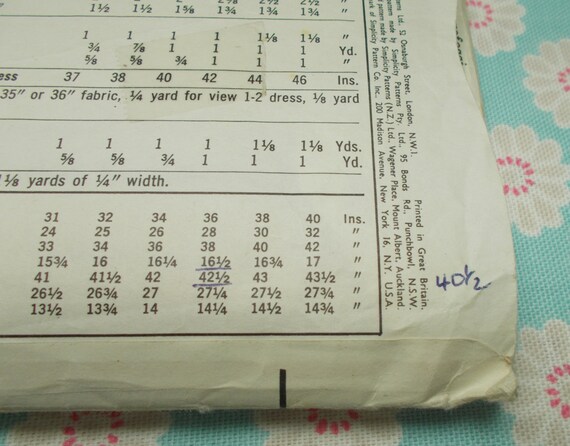 1½ 1½ 1¾ 1¾ "
1 1 1 1 1⅛ 1⅛ "
¾ ⅞ 1 1 1 1 Yd.
⅝ ⅝ ¾ 1 1 1 "
ess 37 38 40 42 44 46 Ins.
35" or 36" fabric, ¼ yard for view 1-2 dress, ⅛ yard
1 1 1 1 1⅛ 1⅛ Yds.
⅝ ⅝ ¾ 1 1 1 Yd.
1⅛ yards of ¼" width.
31 32 34 36 38 40 Ins.
24 25 26 28 30 32 "
33 34 36 38 40 42 "
15¾ 16 16¼ 16½ 16¾ 17 "
41 41½ 42 42½ 43 43½ "
26½ 26¾ 27 27¼ 27½ 27¾ "
13½ 13¾ 14 14¼ 14½ 14¾ "
Patterns Ltd. 52 Osnaburgh Street, London, N.W.1.
pattern made by Simplicity Patterns Pty. Ltd., 95 Bonds Rd. Punchbowl, N.S.W.
pattern made by Simplicity Patterns (N.Z.) Ltd., Wagener Place, Mount Albert, Auckland.
mark of Simplicity Pattern Co. Inc., 200 Madison Avenue, New York 16, N.Y. U.S.A.
Printed in Great Britain.
40½